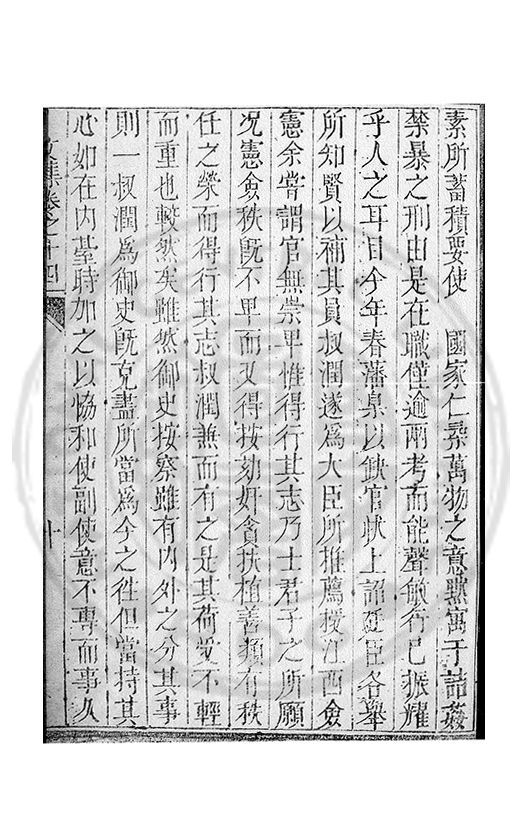 素所蓄積要使　國家仁柔萬物之意黙寓于詰姦
禁暴之刑由是在職僅逾兩考而能聲敏行已振耀
乎人之耳目今年春藩臬以缺官狀上詔廷臣各舉
所知賢以補其員叔潤遂爲大臣所推薦授江西僉
憲余嘗謂官無崇卑惟得行其志乃士君子之所願
况憲僉秩旣不卑而又得按劾奸貪扶植善類有秩
任之榮而得行其志叔潤兼而有之是其荷受不輕
而重也較然矣雖然御史按察雖有内外之分其事
則一叔潤爲御史旣克盡所當爲今之徃但當持其
心如在内臺時加之以恊和使副使意不專而事久
文集卷之十四
十